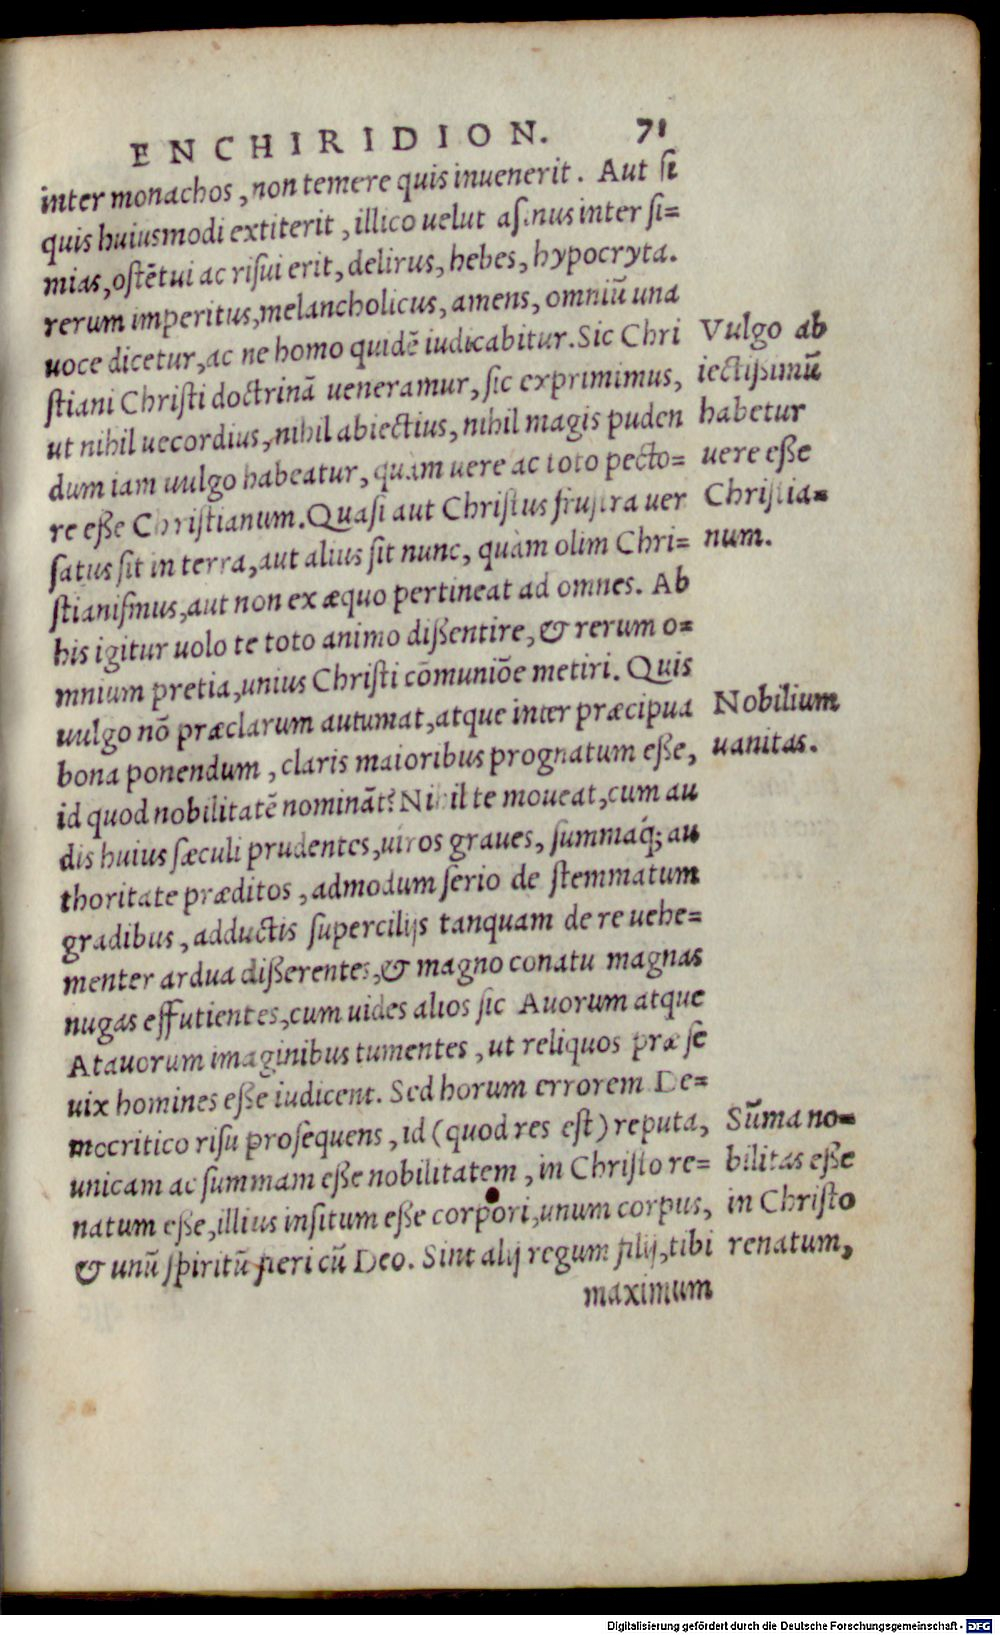 ENCHIRIDION. 71
inter monachos, non temere quis inuenerit. Aut ſi
quis huiusmodi extiterit, illico uelut aſinus inter ſi=
mias, oſtētui ac riſui erit, delirus, hebes, hypocryta.
rerum imperitus, melancholicus, amens, omniū una
uoce dicetur, ac ne homo quidē iudicabitur. Sic Chri
ſtiani Chriſti doctrinā ueneramur, ſic exprimimus,
ut nihil uecordius, nihil abiectius, nihil magis puden
dum iam uulgo habeatur, quàm uere ac toto pecto=
re eſſe Chriſtianum. Quaſi aut Chriſtus fruſtra uer
ſatus ſit in terra, aut alius ſit nunc, quàm olim Chri=
ſtianiſmus, aut non ex æquo pertineat ad omnes. Ab
his igitur uolo te toto animo diſſentire, & rerum o=
mnium pretia, unius Chriſti cōmuniōe metiri. Quis
uulgo nō præclarum autumat, atque inter præcipua
bona ponendum, claris maioribus prognatum eſſe,
id quod nobilitatē nomināt? Nihil te moueat, cum au
dis huius ſæculi prudentes, uiros graues, ſummaq́; au
thoritate præditos, admodum ſerio de ſtemmatum
gradibus, adductis ſupercilijs tanquam de re uehe=
menter ardua diſſerentes, & magno conatu magnas
nugas effutientes, cum uides alios ſic Auorum atque
Atauorum imaginibus tumentes, ut reliquos præ ſe
uix homines eſſe iudicent. Sed horum errorem De=
mocritico riſu proſequens, id (quod res eſt) reputa,
unicam ac ſummam eſſe nobilitatem, in Chriſto re=
natum eſſe, illius inſitum eſſe corpori, unum corpus,
& unū ſpiritū fieri cū Deo. Sint alij regum filij, tibi
maximum
Vulgo ab
iectiſſimū
habetur
uere eſſe
Chriſtia=
num.
Nobilium
uanitas.
Sūma no=
bilitas eſſe
in Chriſto
renatum,
Digitalisierung gefördert durch die Deutsche Forschungsgemeinschaft - DFG